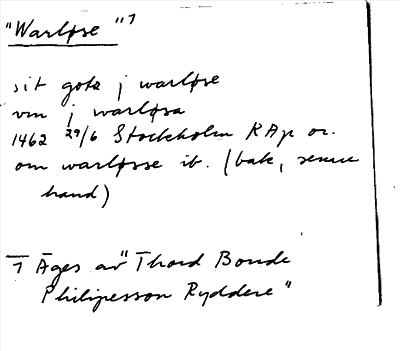 "Warløse" ¹
sit gotz j warløse
vm j warløsa
1462 29/6 Stockholm RAp or.
om warløsse ib. (bak, senare
hand)
1 Äges av "Thord Bonde
Philipesson Ryddere"